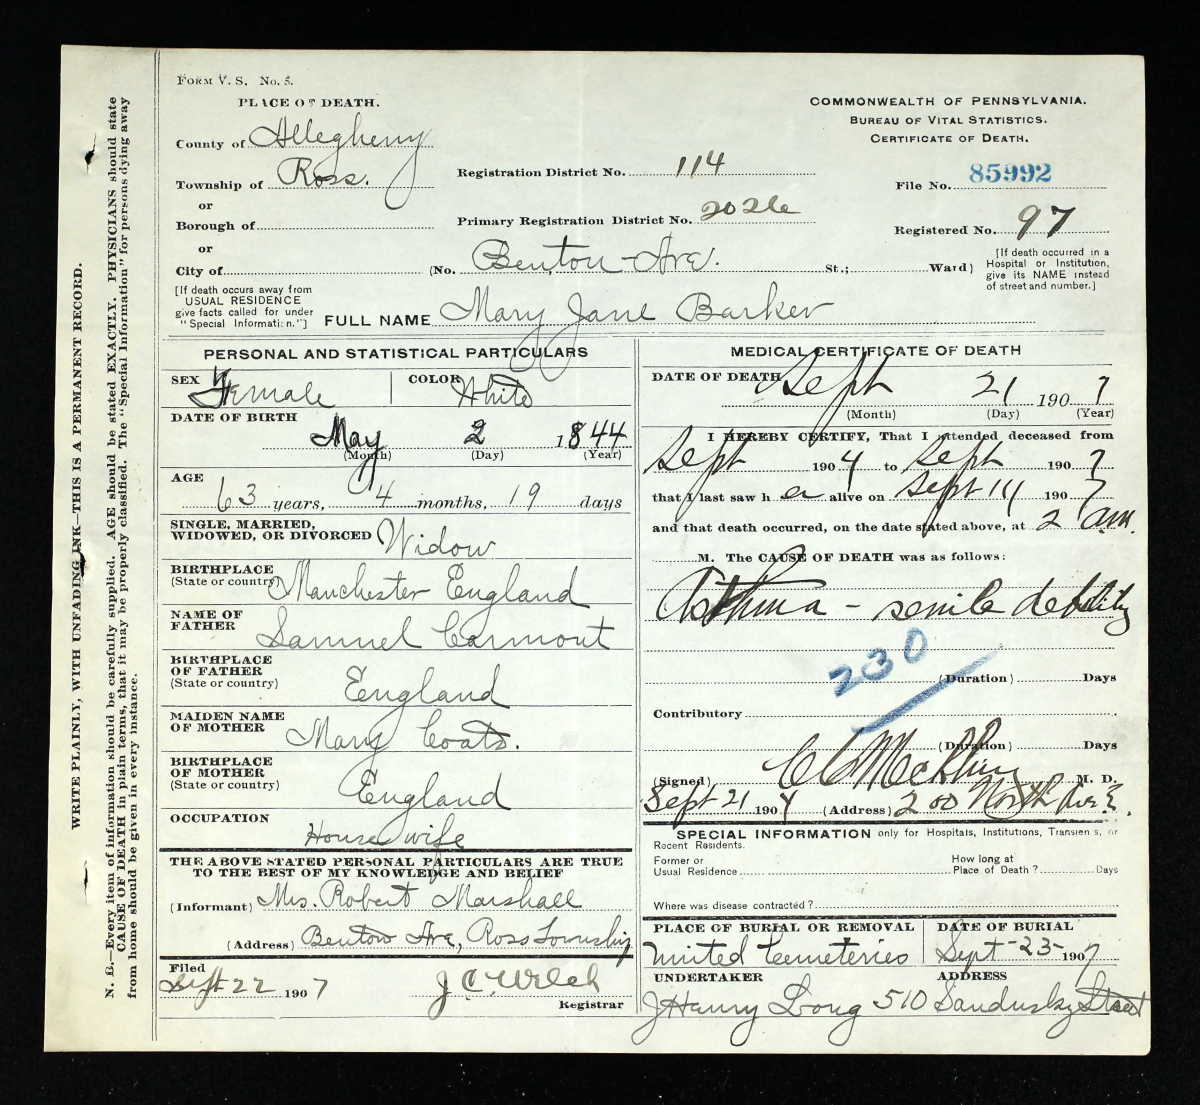 FORM V. S. No. 5.
PLACE OF DEATH.
County of Allegheny
Township of Ross.
or
Borough of
or
City of
COMMONWEALTH OF PENNSYLVANIA.
BUREAU OF VITAL STATISTICS.
CERTIFICATE OF DEATH.
Registration District No. 114
File No. 85992
Primary Registration District No. 2026
Registered No. 97
(No. Benton Ave. St.; Ward)
[If death occurred in a
Hospital or Institution,
give its NAME instead
of street and number.]
[If death occurs away from
USUAL RESIDENCE
give facts called for under
"Special Information."]
FULL NAME Mary Jane Barker
PERSONAL AND STATISTICAL PARTICULARS
SEX Female
COLOR White
DATE OF BIRTH
May 2 1844
(Month) (Day) (Year)
AGE
63 years, 4 months, 19 days
SINGLE, MARRIED,
WIDOWED, OR DIVORCED Widow
BIRTHPLACE
(State or country) Manchester England
NAME OF
FATHER Samuel Carmout
BIRTHPLACE
OF FATHER
(State or country) England
MAIDEN NAME
OF MOTHER Mary Coats.
BIRTHPLACE
OF MOTHER
(State or country) England
OCCUPATION
House wife
THE ABOVE STATED PERSONAL PARTICULARS ARE TRUE
TO THE BEST OF MY KNOWLEDGE AND BELIEF
(Informant) Mrs. Robert Marshall
(Address) Benton Ave, Ross Township
Filed
Sept 22 1907 J C Welch
Registrar
MEDICAL CERTIFICATE OF DEATH
DATE OF DEATH
Sept 21 1907
(Month) (Day) (Year)
I HEREBY CERTIFY, That I attended deceased from
Sept 1904 to Sept 1907
that I last saw her alive on Sept 1907
and that death occurred, on the date stated above, at 2 am.
M. The CAUSE OF DEATH was as follows:
Asthma - senile debility
230
(Duration) Days
Contributory
(Duration) Days
(Signed) M. D.
Sept 21 1907 (Address) 200 North Ave
SPECIAL INFORMATION only for Hospitals, Institutions, Transients, or
Recent Residents.
Former or
Usual Residence
How long at
Place of Death? Days
Where was disease contracted?
PLACE OF BURIAL OR REMOVAL
United Cemeteries
DATE OF BURIAL
Sept 23 1907
UNDERTAKER
J Henry Long
ADDRESS
510 Sandusky Street
WRITE PLAINLY, WITH UNFADING INK—THIS IS A PERMANENT RECORD.
N. B.—Every item of information should be carefully supplied. AGE should be stated EXACTLY. PHYSICIANS should state
CAUSE OF DEATH in plain terms, that it may be properly classified. The "Special Information" for persons dying away
from home should be given in every instance.